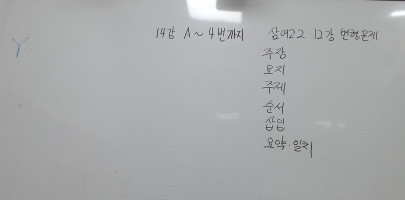 14강 A~4번까지
상어22 12강 변형문제
주장
요지
주제
순서
삽입
요약·일치